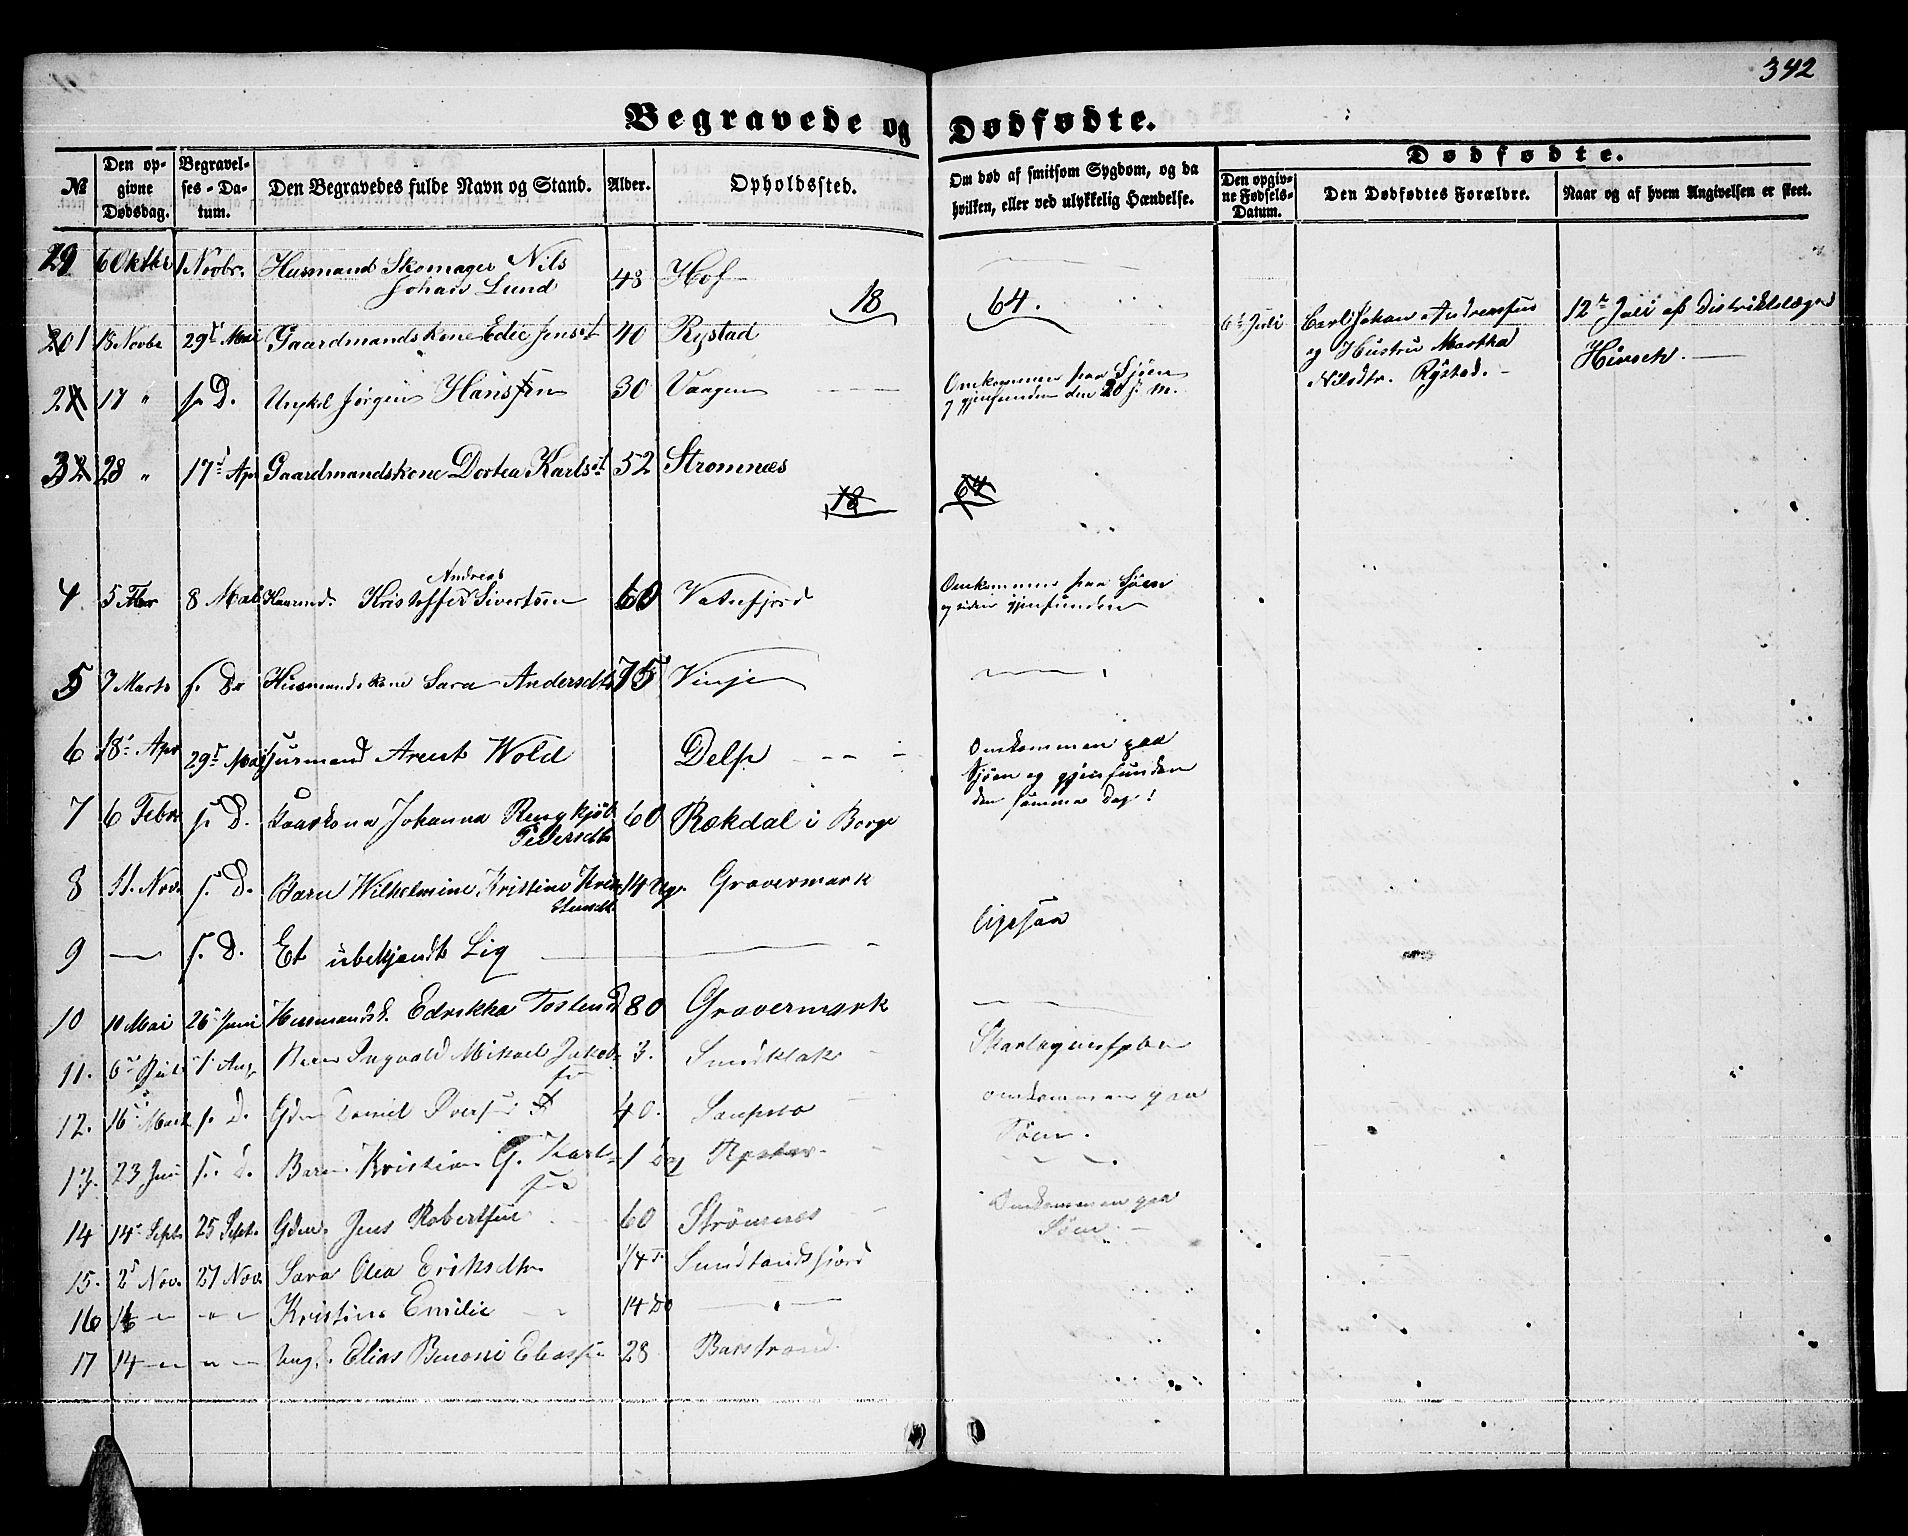 342
Begravede og Dødfødte.
№ Den opgivne Dødsdag. Begravelses-Datum. Den Begravedes fulde Navn og Stand. Alder. Opholdssted. Om død af smitsom Sygdom, og da hvilken, eller ved ulykkelig Hændelse. Dødfødte.
Den opgivne Fødsels-Datum. Den Dødfødtes Forældre. Naar og af hvem Angivelsen er skeet.
29 6 Oktbr 1 Novbr. Husmand Skomager Nils
Johan Lund 48 Hof
18 64.
1 18 Novbr 29de Mai Gaardmandskone Edie Jensdt 40 Rystad
6te Juli Carl Johan Andreassen
og Hustru Martha
Nilsdtr. Rystad. 12te Juli af Distriktslæge
Hirsch.
2 17 " s. D. Ungkl Jørgen Hanssen 30 Vaagen Omkommen paa Sjøen
og gjenfunden den 20 s. M.
3 28 " 17de Apr Gaardmandskone Dortea Karlsdt 52 Stromnæs
18 64
4 5 Febr 8 Mai Kaarmd. Kristoffer Andreas Sivertsen 60 Vatnfjord Omkommen paa Sjøen
og siden gjenfunden
5 7 Marts s. D. Husmandskone Sara Andersdtr 75 Vinje
6 18de Apr 29de Mai Husmand Arent Wold Delp Omkommen paa
Sjøen og gjenfunden
den samme Dag!
7 6 Febr s. D. Kaarkone Johanna Rengkjøb
Pedersdtr 60 Rækdal i Borge
8 11. Nov. s. D. Barn Wilhelmine Kristine Kri
stensdt. 14 Uger Gravermark
9 — s. D. Et ubekjendt Lig — Ligesaa
10 10 Mai 26 Juni Husmandsk. Edrikka Tostensd 80 Gravermark
11. 6te Juli 1 Aug Barn Ingvald Mikael Jakob
sen 3. Sundklak Skarlagensfeber
12. 16de Mart s. D. Gdm Daniel Iversen 40. Laupstad omkommen paa
Søen.
13. 23 Juni s. D. Barn Kristian G. Karl
sen 1 Dag Rystad
14 14de Septb 25 Sept. Gdm. Jens Robertsen 60 Strømnæs Omkommen paa
Søen.
15. 2de Nov. 27 Nov. Sara Olea Eriksdtr 1/4 T. Sundlandsfjord
16 16 — " — Kristine Emilie 14 Do — " —
17 14 — " — Ungk. Elias Benoni Eliassen 28 Barstrand.